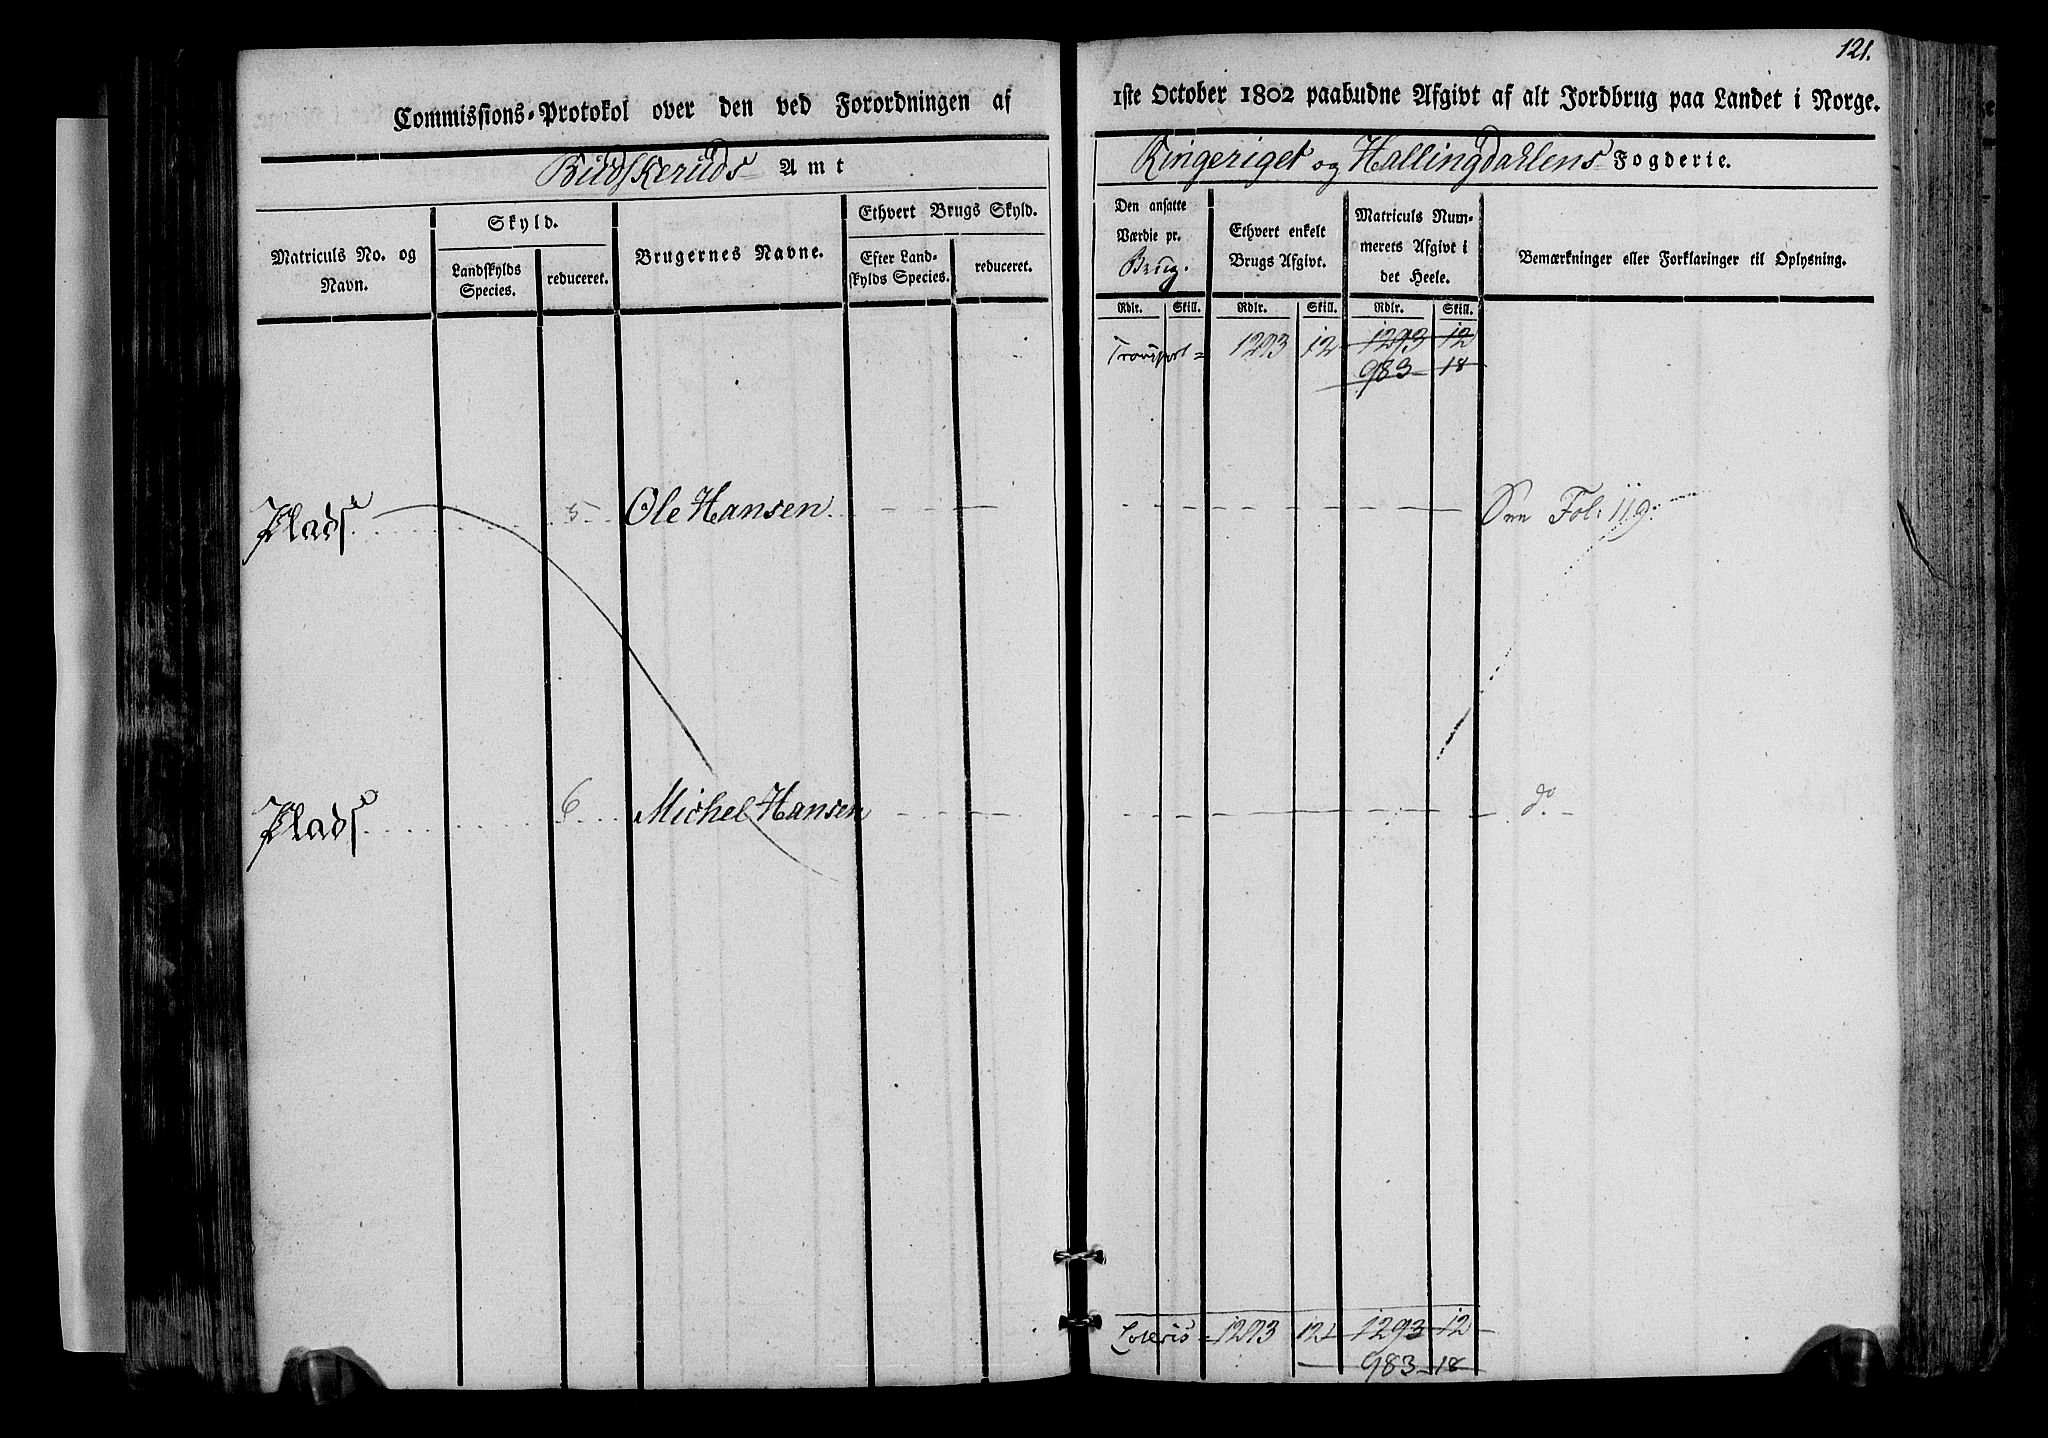 121.
Commissions-Protokol over den ved Forordningen af 1ste October 1802 paabudne Afgivt af alt Jordbrug paa Landet i Norge.
Budskeruds Amt Ringeriget og Hallingdahlens Fogderie.
Matriculs No. og Navn.
Skyld.
Landskylds Species.
reduceret.
Brugernes Navne.
Ethvert Brugs Skyld.
Efter Landskylds Species.
reduceret.
Den ansatte Værdie pr. Brug.
Rdlr. Skill.
Ethvert enkelt Brugs Afgivt.
Rdlr. Skill.
Matriculs Nummerets Afgivt i det Heele.
Rdlr. Skill.
Bemærkninger eller Forklaringer til Oplysning.
Transport = 1293 12 1293 12
983 18
Plads 5 Ole Hansen Fol: 119.
Plads 6 Michel Hansen do
Lateris = 1293 12 1293 12
983 18